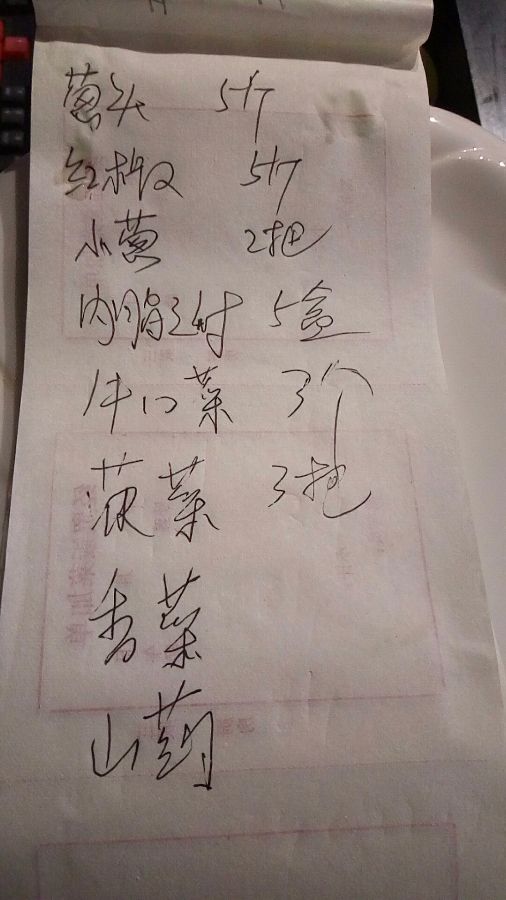 葱头 5斤
红椒 5斤
小葱 2把
内脂豆付 5盒
牛口菜 3个
菜 3把
香菜
山药